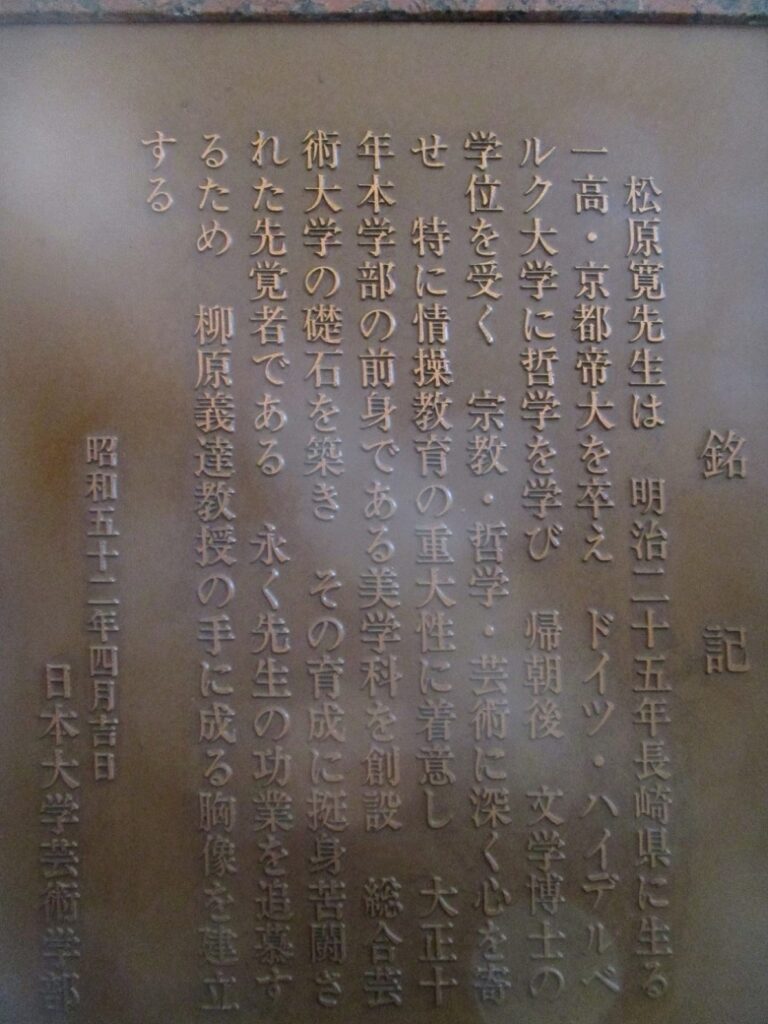 銘記
松原寛先生は　明治二十五年長崎県に生る
一高・京都帝大を卒え　ドイツ・ハイデルベ
ルク大学に哲学を学び　帰朝後　文学博士の
学位を受く　宗教・哲学・芸術に深く心を寄
せ　特に情操教育の重大性に着意し　大正十
年本学部の前身である美学科を創設　総合芸
術大学の礎石を築き　その育成に挺身苦闘さ
れた先覚者である　永く先生の功業を追慕す
るため　柳原義達教授の手に成る胸像を建立
する
昭和五十二年四月吉日
日本大学芸術学部